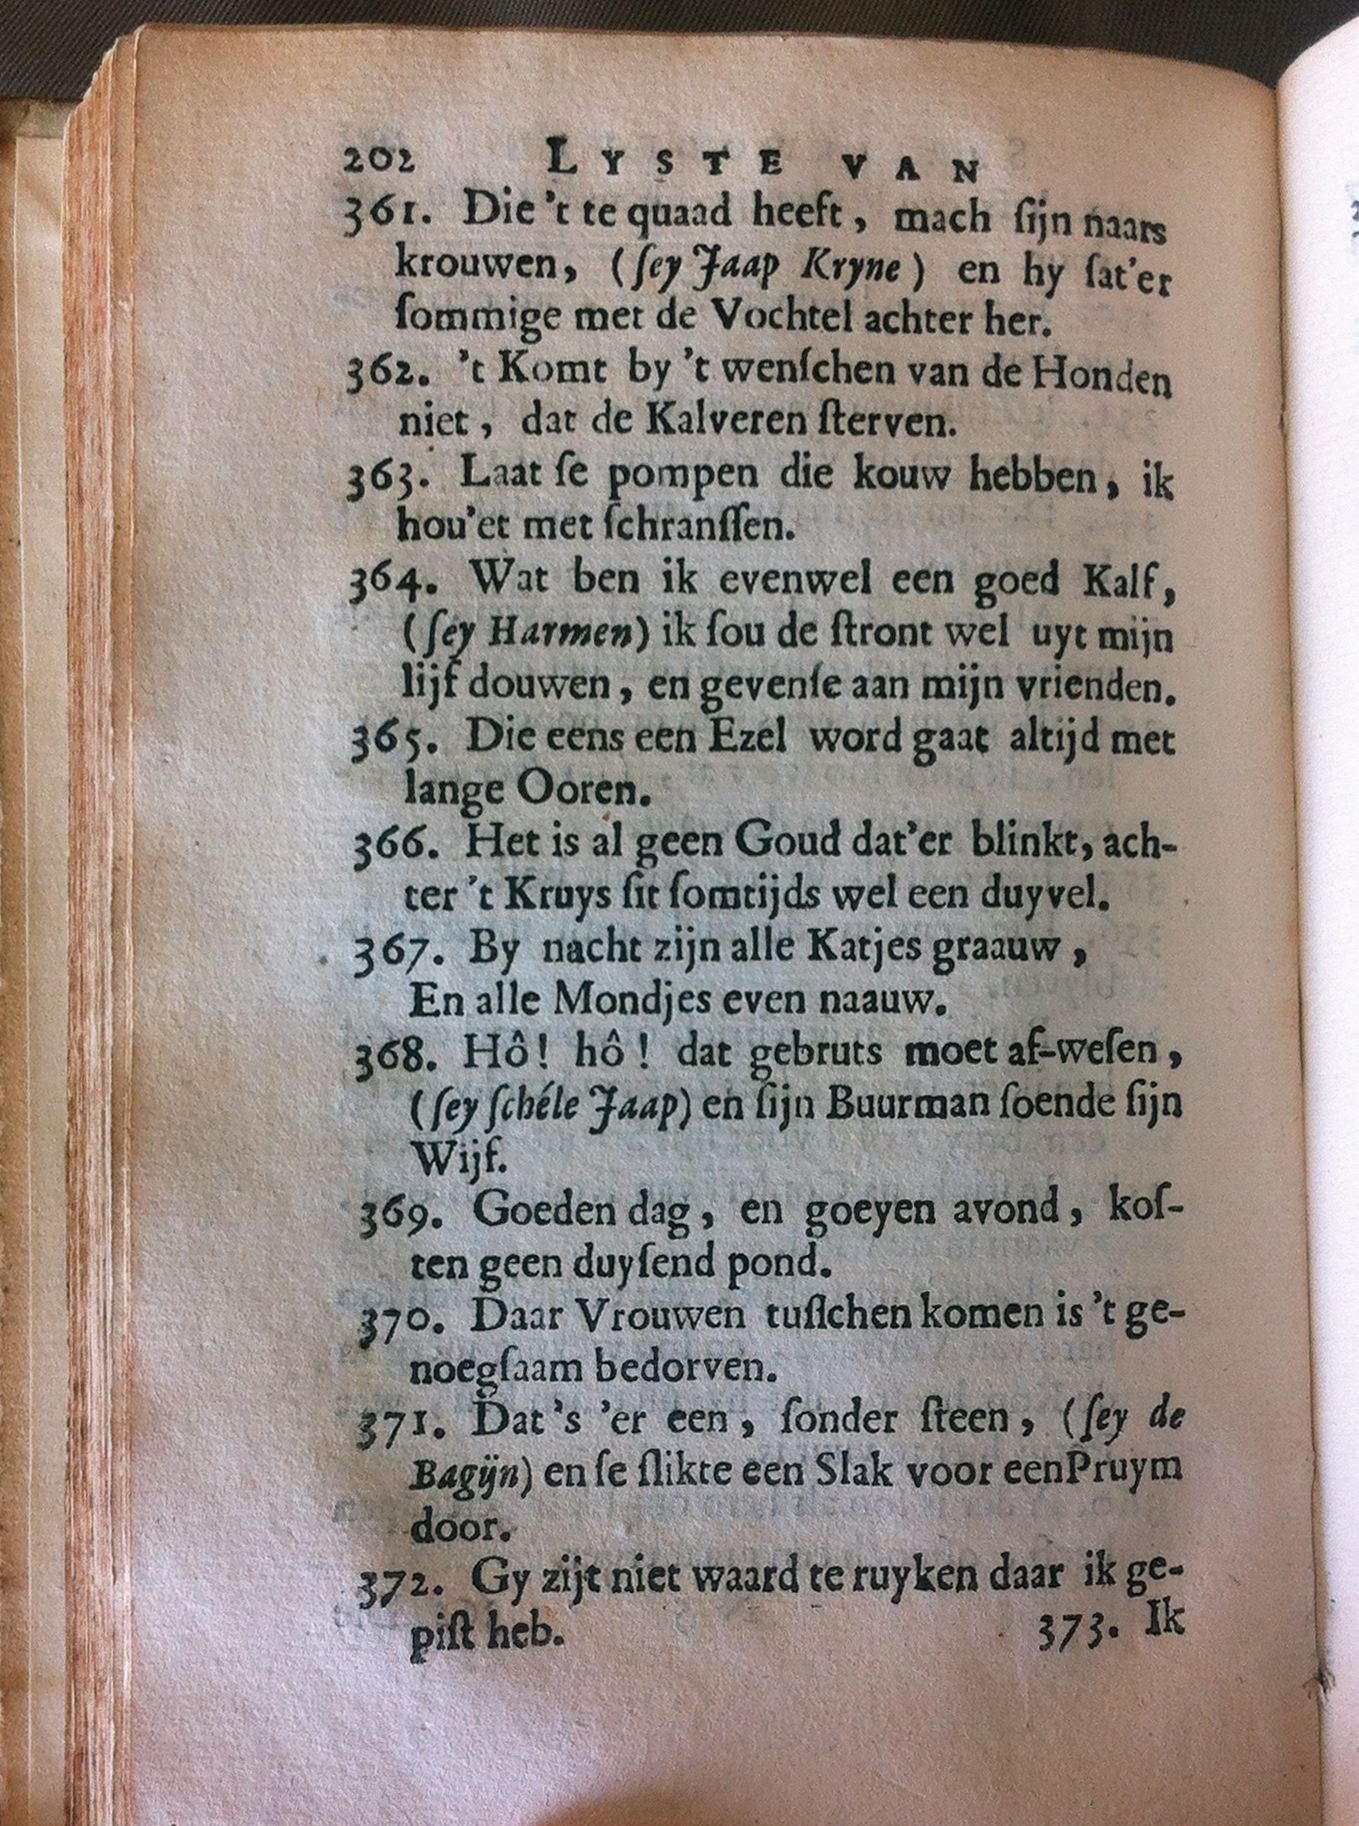 202 LYSTE VAN
361. Die 't te quaad heeft, mach ſijn naars
krouwen, (ſey Jaap Kryne) en hy ſat'er
ſommige met de Vochtel achter her.
362. 't Komt by 't wenſchen van de Honden
niet, dat de Kalveren ſterven.
363. Laat ſe pompen die kouw hebben, ik
hou'et met ſchranſſen.
364. Wat ben ik evenwel een goed Kalf,
(ſey Harmen) ik ſou de ſtront wel uyt mijn
lijf douwen, en gevenſe aan mijn vrienden.
365. Die eens een Ezel word gaat altijd met
lange Ooren.
366. Het is al geen Goud dat'er blinkt, ach-
ter 't Kruys ſit ſomtijds wel een duyvel.
367. By nacht zijn alle Katjes graauw,
En alle Mondjes even naauw.
368. Hô! hô! dat gebruts moet af-weſen,
(ſey ſchéle Jaap) en ſijn Buurman ſoende ſijn
Wijf.
369. Goeden dag, en goeyen avond, koſ-
ten geen duyſend pond.
370. Daar Vrouwen tuſſchen komen is 't ge-
noegſaam bedorven.
371. Dat 's 'er een, ſonder ſteen, (ſey de
Bagijn) en ſe ſlikte een Slak voor een Pruym
door.
372. Gy zijt niet waard te ruyken daar ik ge-
piſt heb. 373. Ik